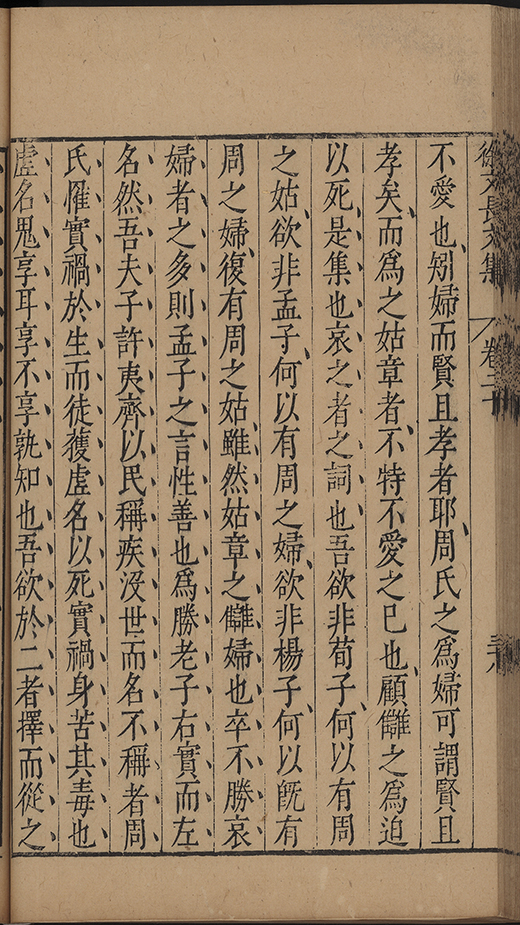 徐文長文集 卷二十
不愛也矧婦而賢且孝者耶周氏之爲婦可謂賢且
孝矣而爲之姑章者不特不愛之已也顧讎之爲迫
以死是集也哀之者之詞也吾欲非荀子何以有周
之姑欲非孟子何以有周之婦欲非楊子何以旣有
周之婦復有周之姑雖然姑章之讎婦也卒不勝哀
婦者之多則孟子之言性善也爲勝老子右實而左
名然吾夫子許夷齊以民稱疾沒世而名不稱者周
氏惟實禍於生而徒獲虛名以死實禍身苦其毒也
虛名鬼享耳享不享孰知也吾欲於二者擇而從之